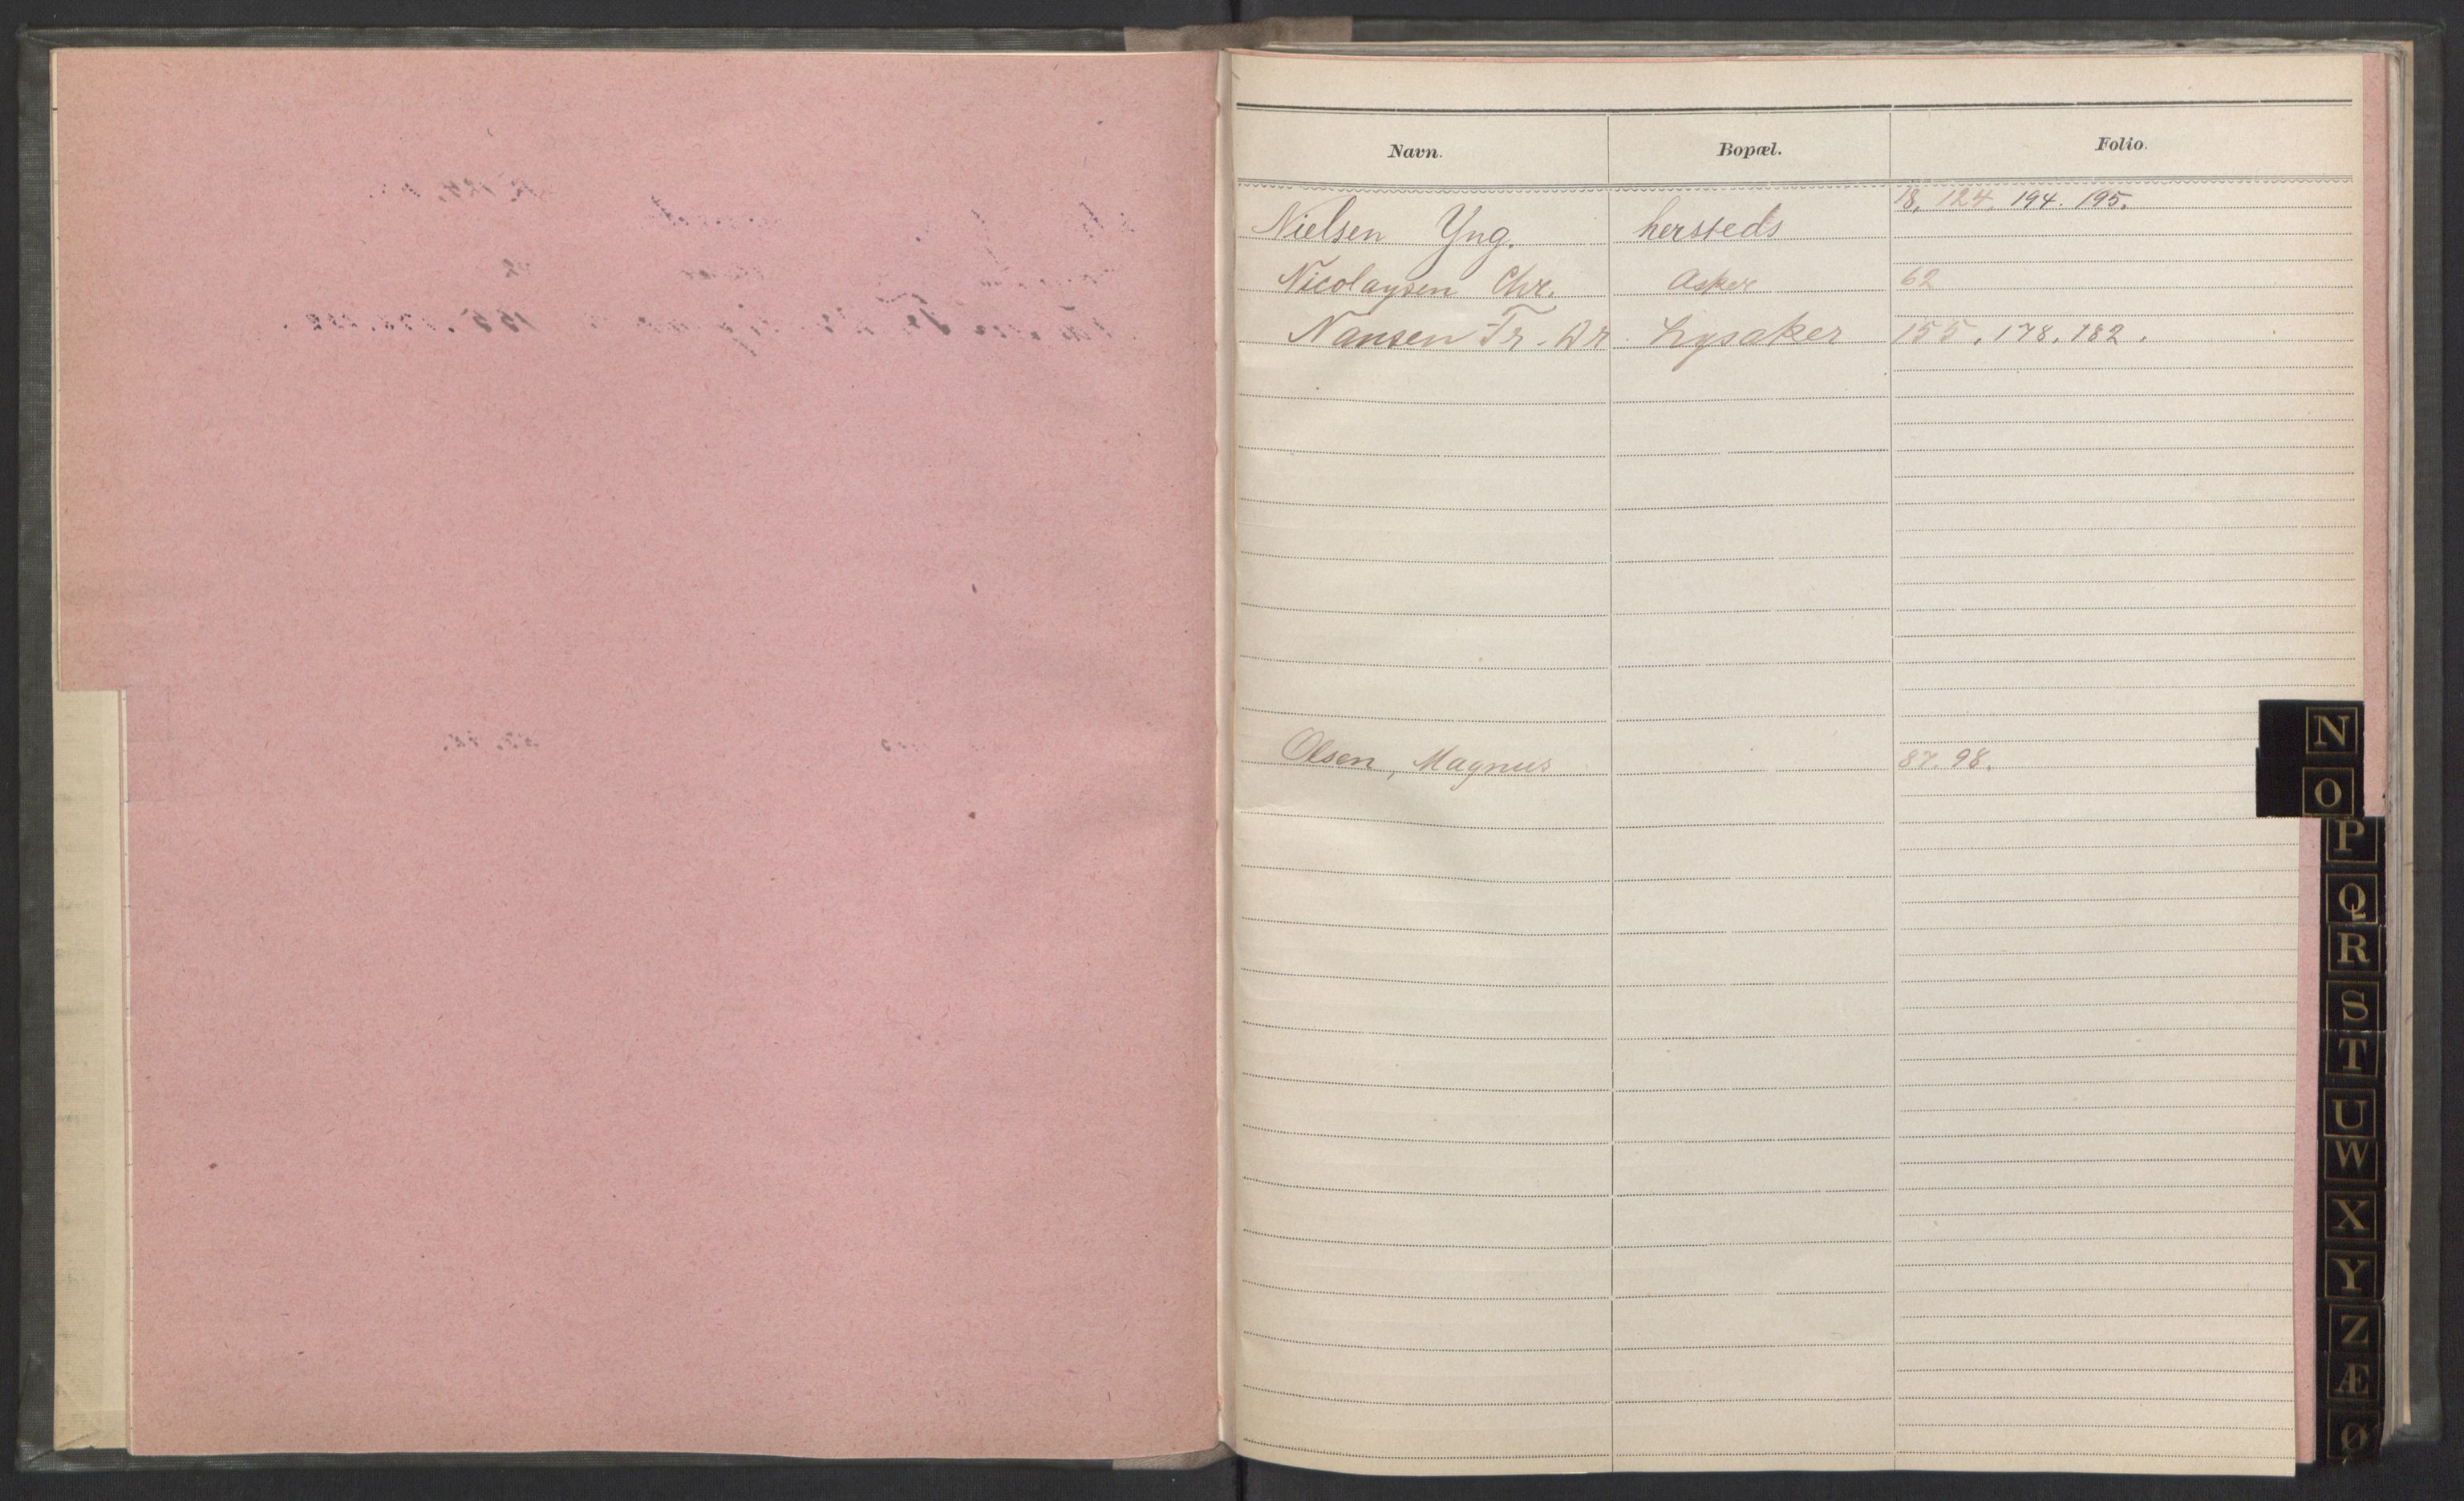 Navn. Bopæl. Folio.
18, 124, 194. 195.
Nielsen Yng. hersteds
Nicolaysen Chr. Asker 62
Nansen Fr. Dr. Lysaker 155, 178, 182.
Olsen, Magnus 87. 98.
N
O
P
Q
R
S
T
U
W
X
Y
Z
Æ
Ø